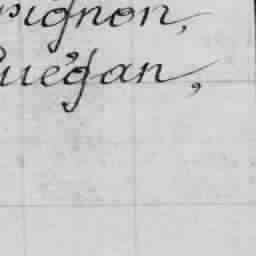 pignon,
Guégan,